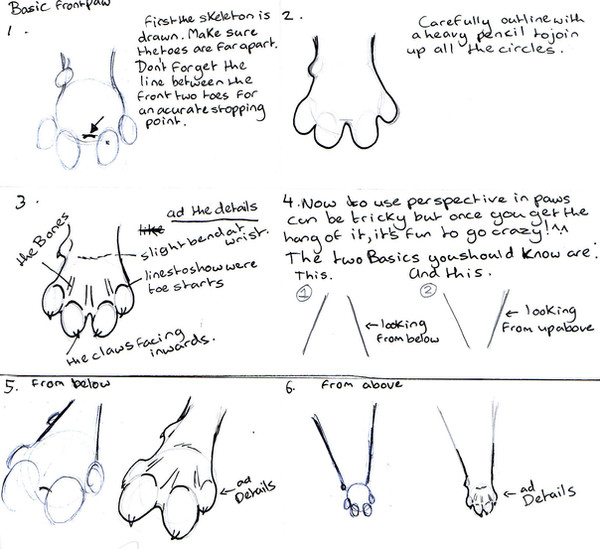 Basic frontpaw
1.
First the skeleton is
drawn. Make sure
the toes are far apart.
Don't forget the
line between the
front two toes for
an acurate stopping
point.
2.
Carefully outline with
a heavy pencil to join
up all the circles.
3.
ad the details
the Bones
slight bend at
wrist.
lines to show were
toe starts
the claws facing
inwards.
4. Now to use perspective in paws
can be tricky but once you get the
hang of it, it's fun to go crazy!^^
The two Basics you should know are:
This. and this.
1
← looking
from below
2
← looking
from up above
5. From below
← ad
Details
6. From above
← ad
Details